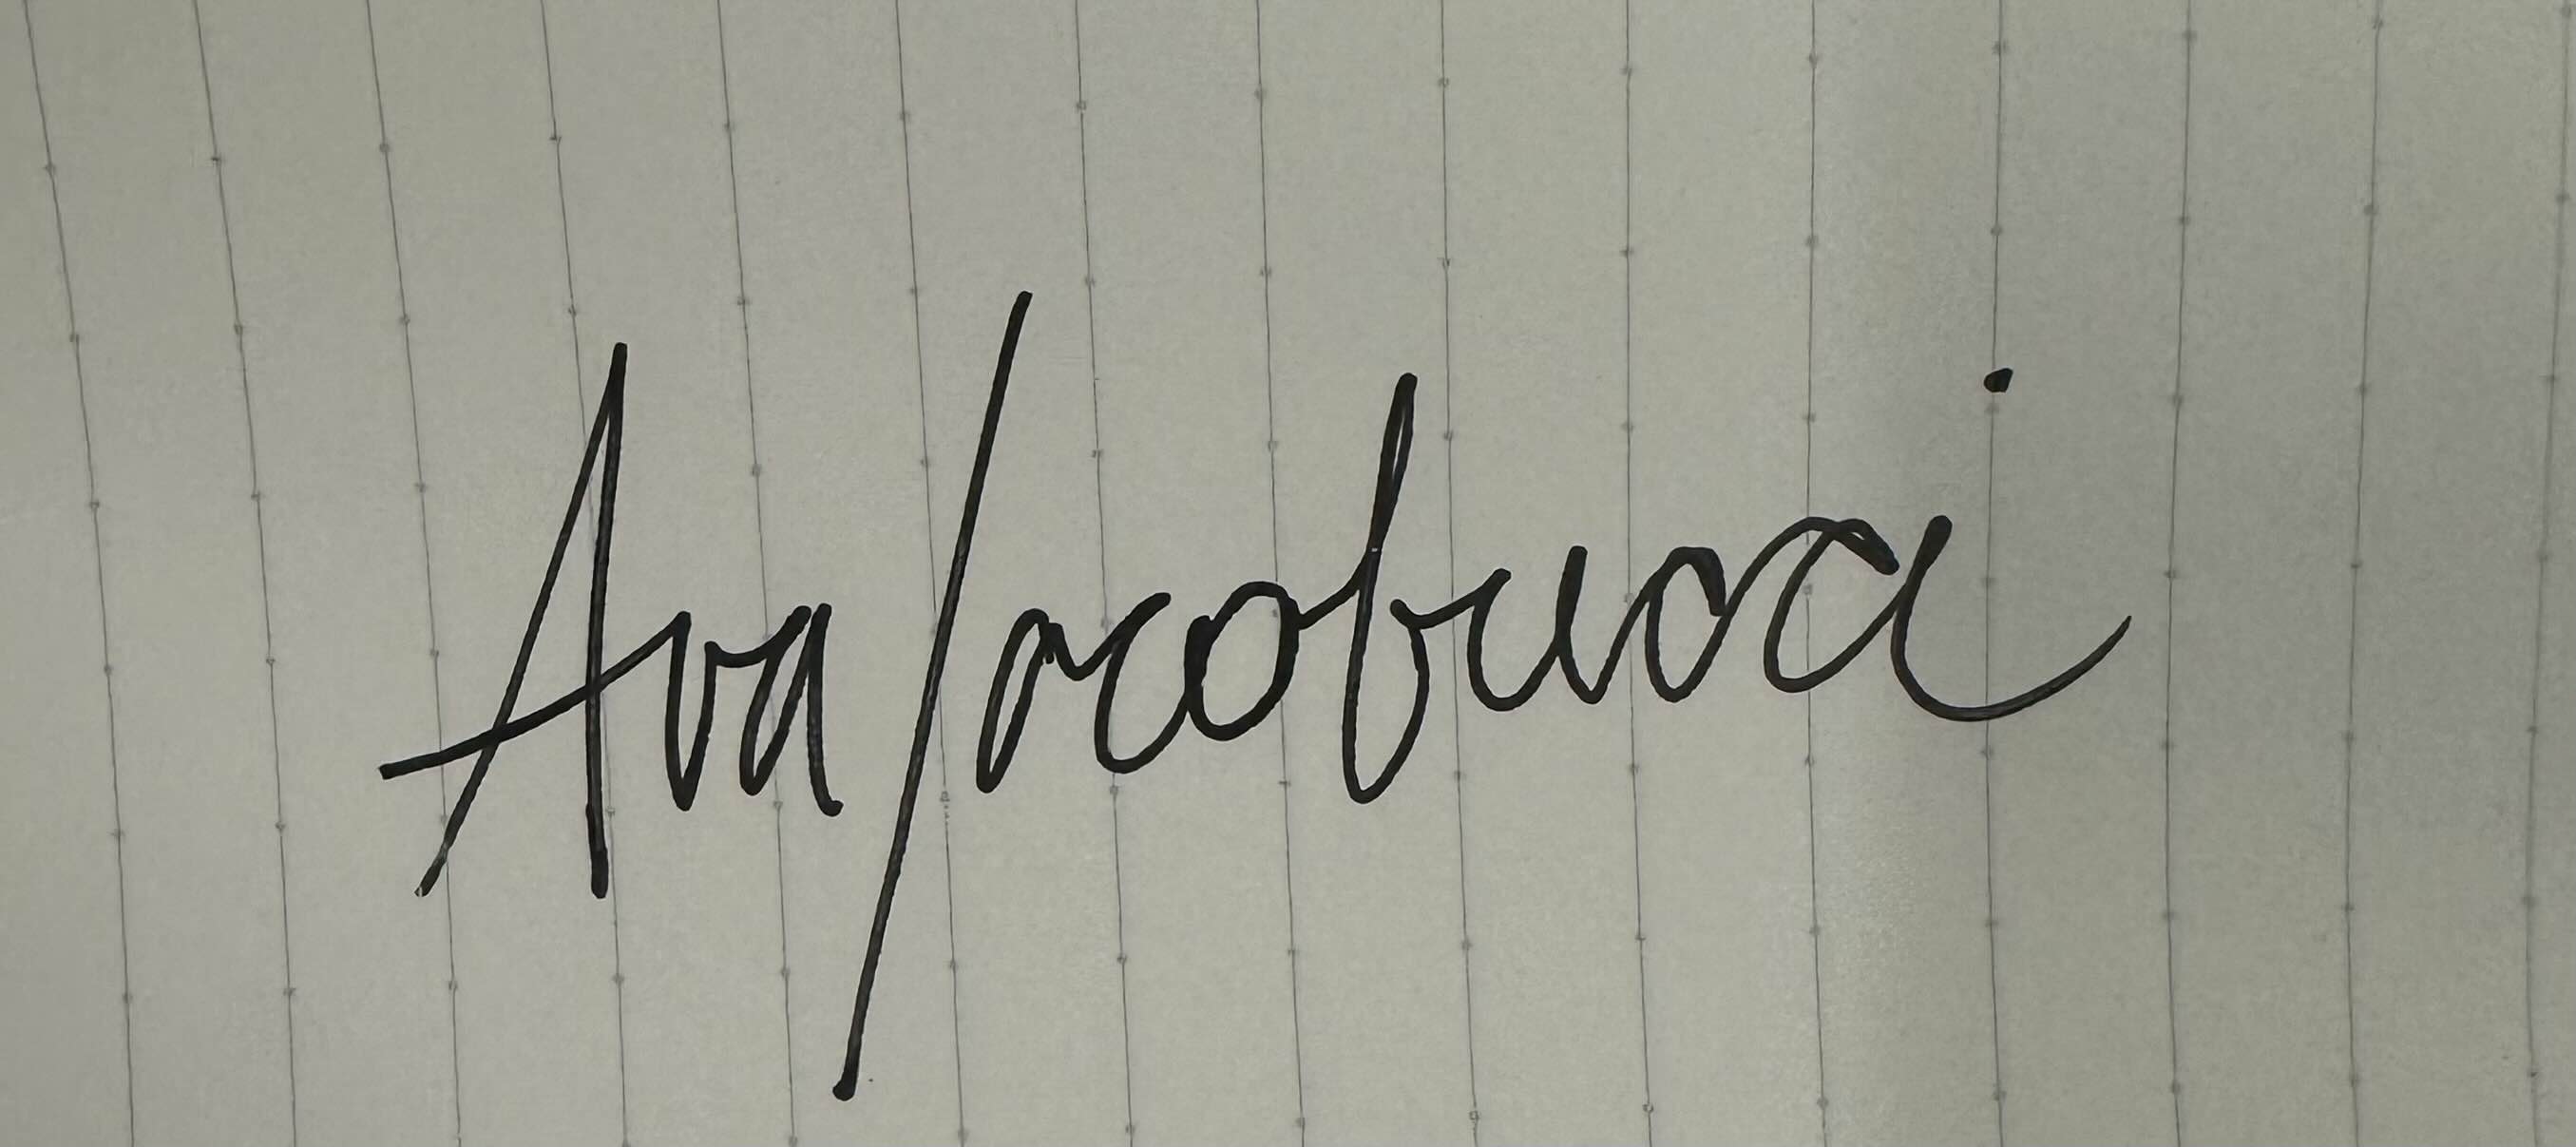 Ava Iacobucci